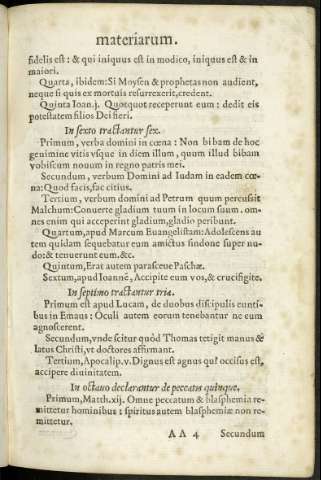 materiarum.
fidelis est : & qui iniquus est in modico, iniquus est & in
maiori.
Quarta, ibidem: Si Moysen & prophetas non audient,
neque si quis ex mortuis resurrexerit, credent.
Quinta Ioan.j. Quotquot receperunt eum : dedit eis
potestatem filios Dei fieri.
In sexto tractantur sex.
Primum, verba domini in cœna : Non bibam de hoc
genimine vitis vsque in diem illum, quum illud bibam
vobiscum nouum in regno patris mei.
Secundum, verbum Domini ad Iudam in eadem cœ-
na: Quod facis, fac citius.
Tertium, verbum domini ad Petrum quum percussit
Malchum: Conuerte gladium tuum in locum suum. om-
nes enim qui acceperint gladium, gladio peribunt.
Quartum, apud Marcum Euangelistam: Adolescens au
tem quidam sequebatur eum amictus sindone super nu-
do: & tenuerunt eum. &c.
Quintum, Erat autem parasceue Paschæ.
Sextum, apud Ioannē, Accipite eum vos, & crucifigite.
In septimo tractantur tria.
Primum est apud Lucam, de duobus discipulis eunti-
bus in Emaus : Oculi autem eorum tenebantur ne eum
agnoscerent.
Secundum, vnde scitur quòd Thomas tetigit manus &
latus Christi, vt doctores affirmant.
Tertium, Apocalip.v. Dignus est agnus qui occisus est,
accipere diuinitatem.
In octauo declarantur de peccatis quinque.
Primum, Matth.xij. Omne peccatum & blasphemia re-
mittetur hominibus : spiritus autem blasphemiæ non re-
mittetur.
AA 4 Secundum